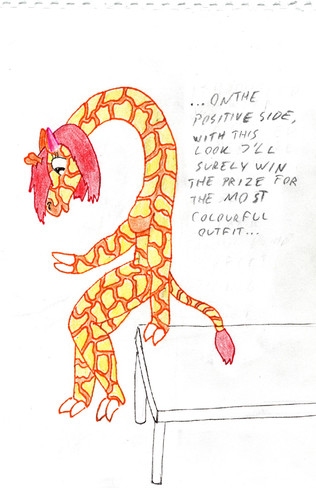 ...ON THE
POSITIVE SIDE,
WITH THIS
LOOK I'LL
SURELY WIN
THE PRIZE FOR
THE MOST
COLOURFUL
OUTFIT...